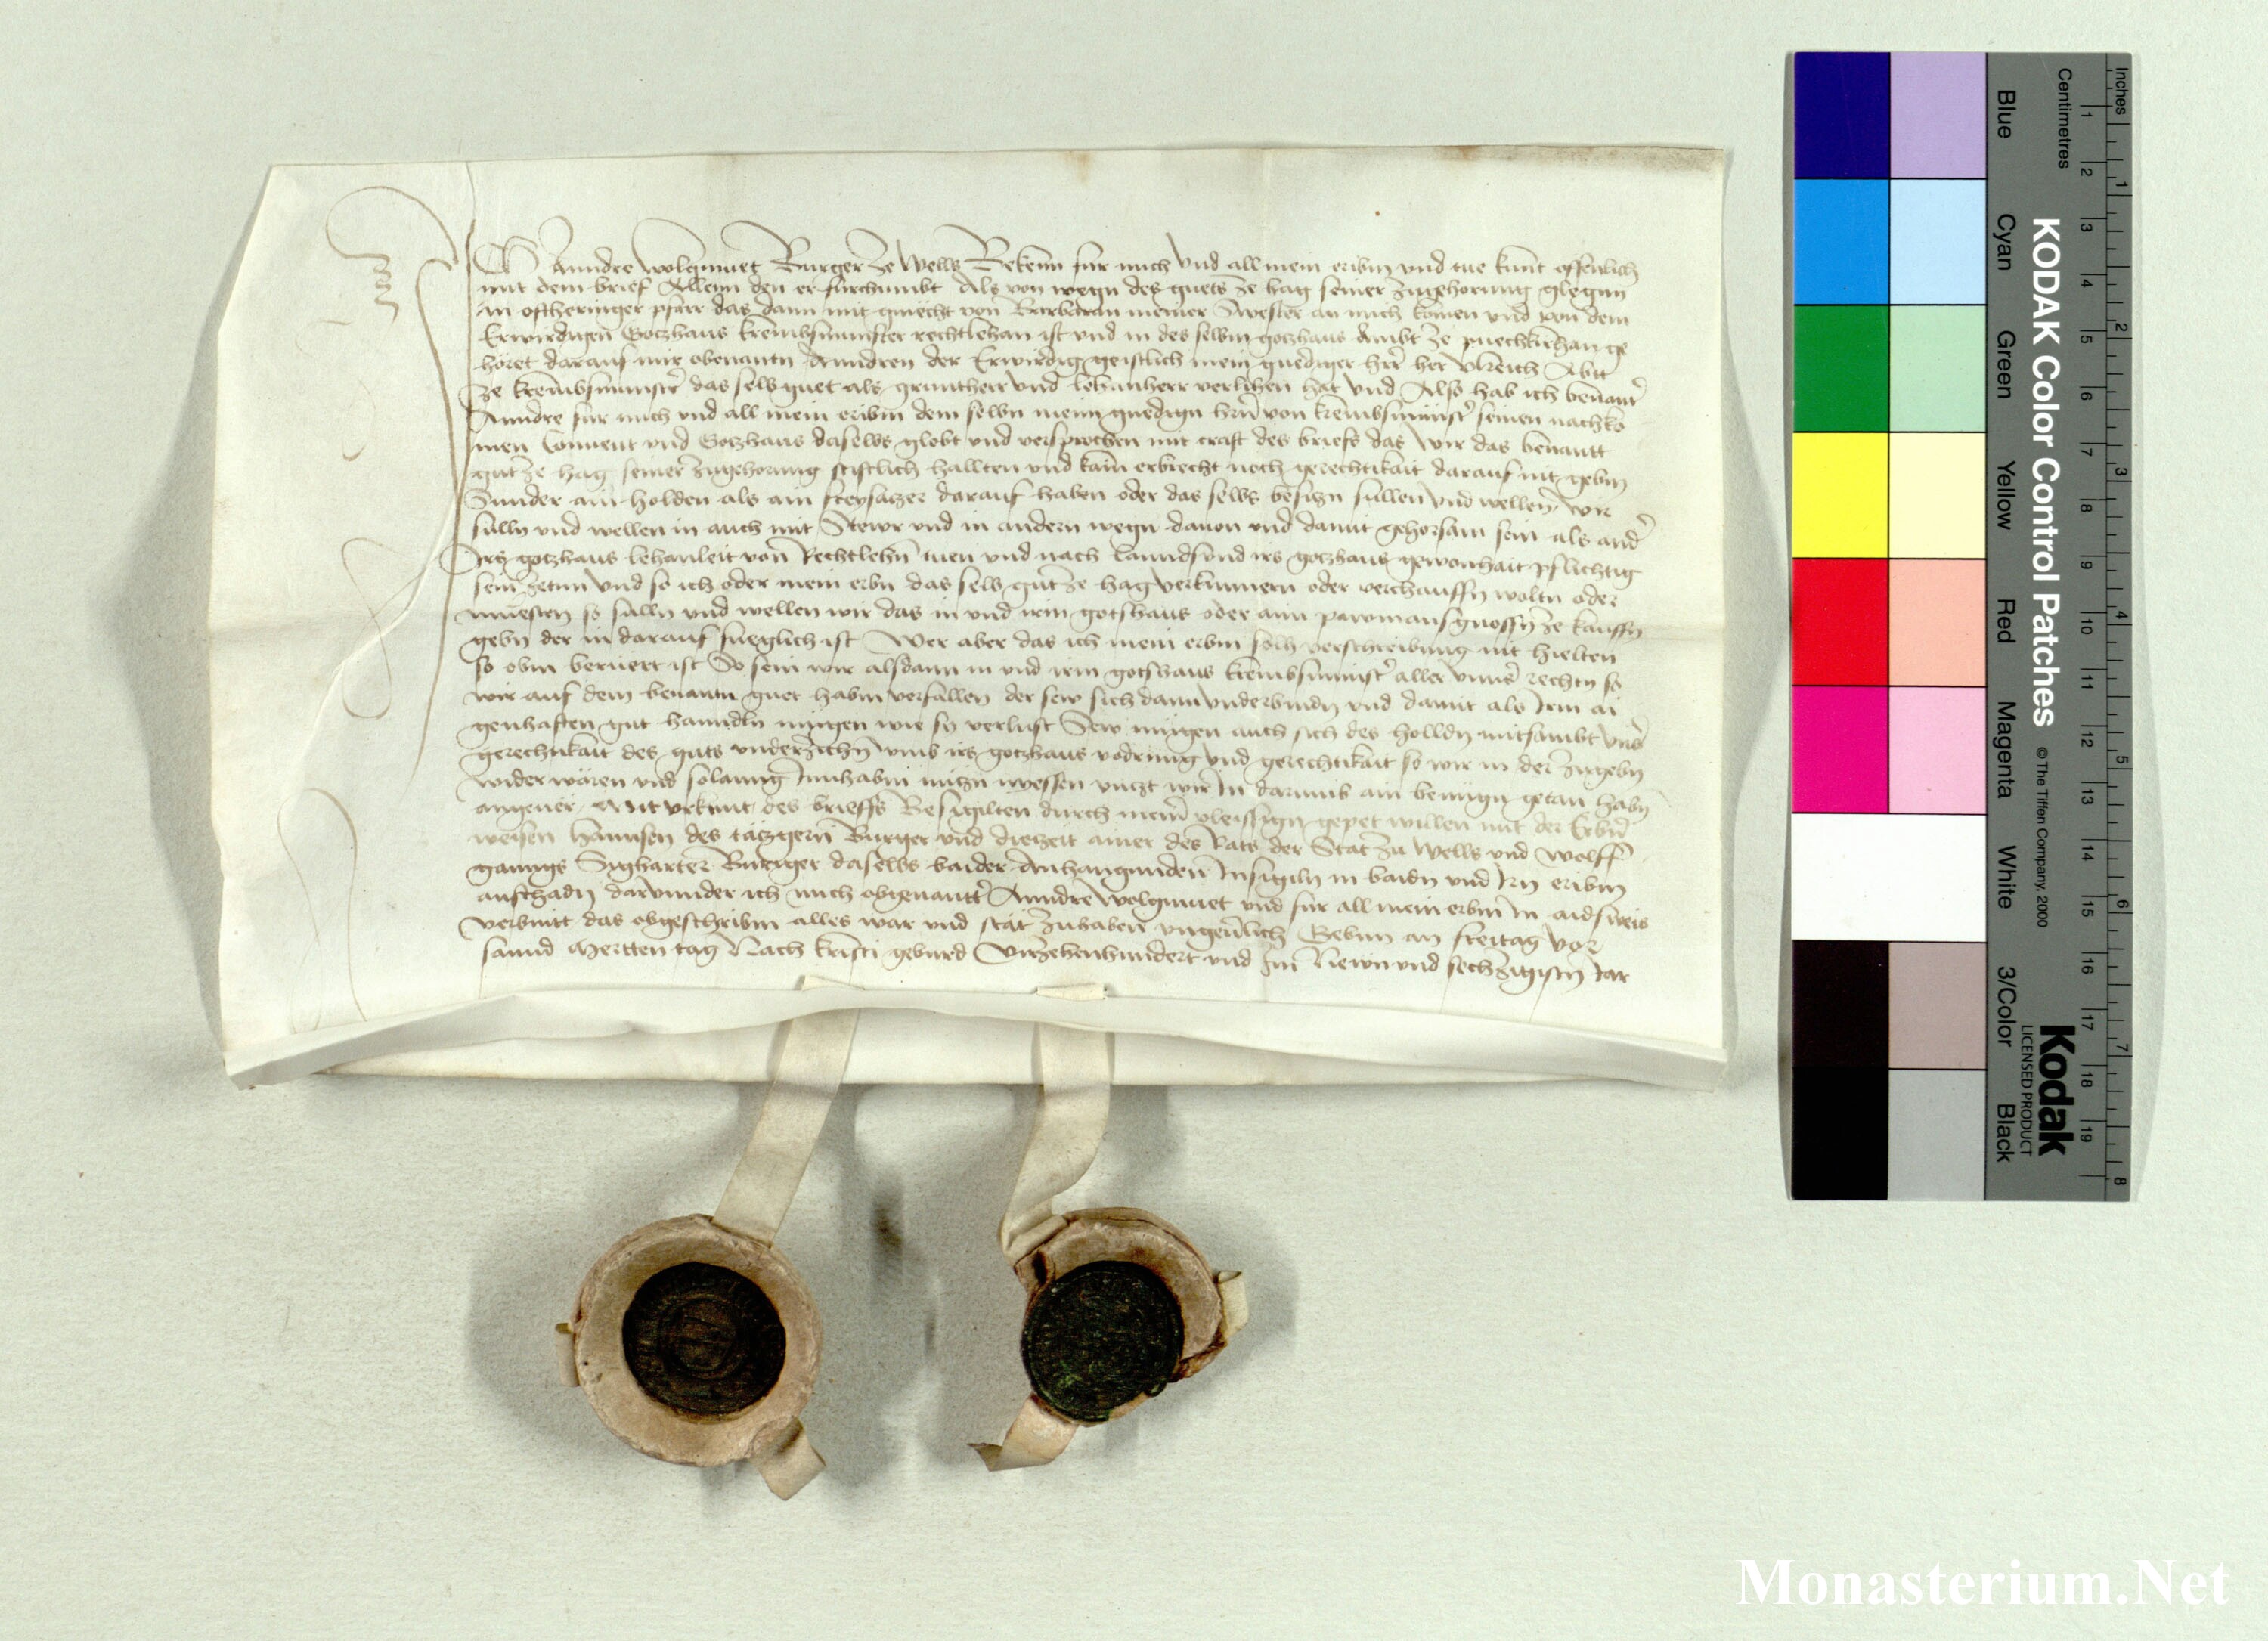 Ich Anndre Wolgmuet Burger ze Wells Bekenn für mich und all mein eribm und tue kunt offenlich
mit dem brief Allenn den er fürchumbt Als von wegn des guets ze hag seiner zugehorung glegnn
in oftheringer pfarr das dann mit gmëcht von Barbaran meiner Swester an mich komen und von dem
Erwirdigen Gotzhaus krembsmunster rechtlehan ist und in des selbm gotzhaus Ambt ze puechkirchan ge
höret darauf mir obenantn Anndren der Erwirdig geistlich mein gnediger her her Vlreich Abtt
ze krembsmunster das selb guet als gruntherr und lehannherr verlihen hat Und Also hab ich benantt
Anndre für mich und all mein eribm dem selbn meim gnedign hern von krembsmünster seinen nachko
men Convent und Gotzhaus daselbs globt und versprochen mit craft des briefs das wir das benantt
gut ze hag seiner zugehorung stiftlich hallten und kain erbrecht noch gerechtikait darauf nit gebm
Sunder ain holden als ain freysatzer darauf haben oder das selbs besitzn sullen und wellen wir
sulln und wellen in auch mit Stewr und in andern wegn davon und damit gehorsam sein als ander
Irs gotzhaus lehanleit von Rechtlehn tuen und nach lannds und irs gotzhaus gewonhait pflichtig
sein zetun Und so ich oder mein erbn das selb gut ze hag verkumern oder verchauffn woltn oder
muesten so sulln und wellen wir das in und irm gotshaus oder aim gnossn ze kauffn
gebn der in darauf fueglich ist Wer aber das ich mein erbm solh verschreibung nit hielten
so obm beruert ist So sein wir alsdann in und irm gotshaus krembsmunster aller unnser rechtn so
wir auf dem benantn guet habm verfallen der sew sich dann underbindn und damit als Irm ai
genhaften gut hanndln mügen wie sy verlust Sew mügen auch sich des holldn mitsambt unser
gerechtikait des guts underziehn umb irs gotzhaus vodrung und gerechtikait so wir in der zugebn
wider wären und solanng Innhabm nützn niessen unczt wir In darumb ain benügn getan habn
angever Mit urkunt des brieffs Besigilten durch meiner vleissign gepet willen mit der Erbern
weisen hannsen des tätzgern Burger und diezeit ainer des Rats der Stat zu Wells und Wolff
ganngs Sygharter Burger daselbs baider Anhangunden Insigiln in baidn und Irn eribm
anschadn darunnder ich mich obgenantter Anndre Wolgmuet und für all mein erbm In aidsweis
verbintt das obgeschribm alles war und stät zuhaben ungeverlich Gebnn an freitag vor
sannd Mertten tag Nach kristi geburd Virzehenhundert und Im Newn und sechzigistn Jar
Inches
Centimetres
1 2 3 4 5 6 7 8 9 10 11 12 13 14 15 16 17 18 19
1 2 3 4 5 6 7 8
KODAK Color Control Patches
© The Tiffen Company, 2000
Kodak
LICENSED PRODUCT
Blue
Cyan
Green
Yellow
Red
Magenta
White
3/Color
Black
Monasterium.Net